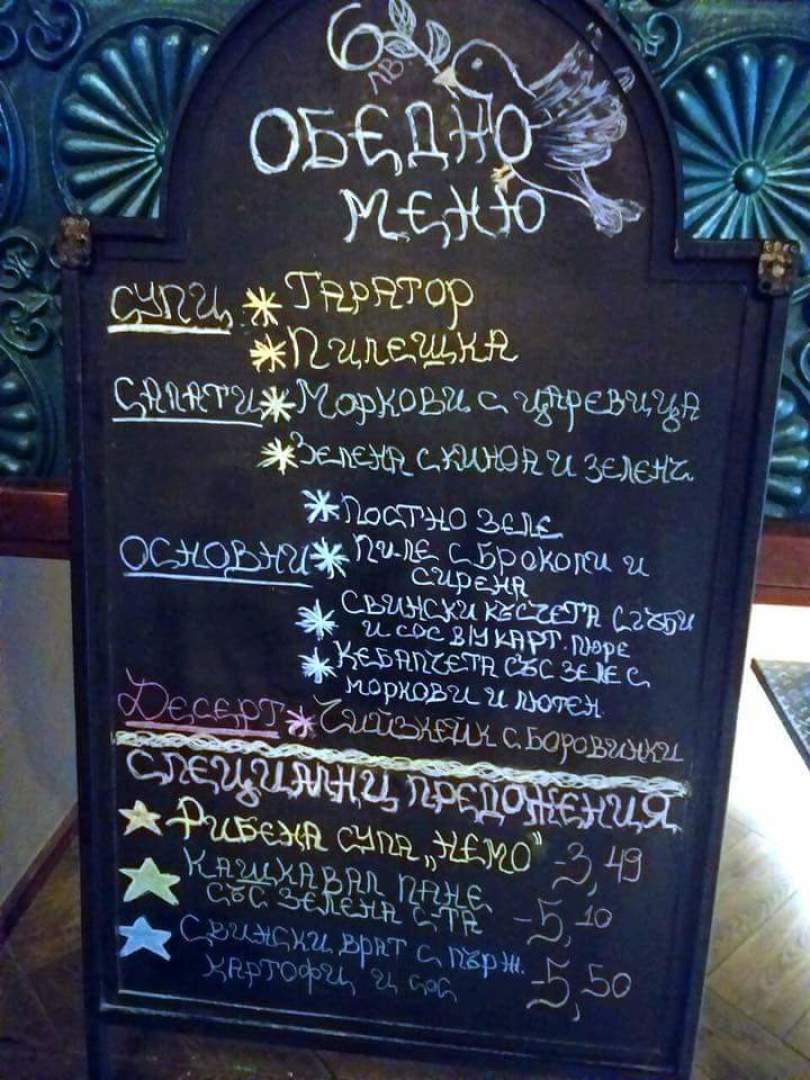 6 лв.
ОБЕДНО
МЕНЮ
СУПИ * ТАРАТОР
* ПИЛЕШКА
САЛАТИ * МОРКОВИ С ЦАРЕВИЦА
* ЗЕЛЕНА С КИНОА И ЗЕЛЕНЧ.
* ПОСТНО ЗЕЛЕ
ОСНОВНИ * ПИЛЕ С БРОКОЛИ И
СИРЕНА
* СВИНСКИ КЪСЧЕТА С ГЪБИ
И СОС В/У КАРТ. ПЮРЕ
* КЕБАПЧЕТА СЪС ЗЕЛЕ С
МОРКОВИ И ЛЮТЕН.
ДЕСЕРТ * ЧИЙЗКЕЙК С БОРОВИНКИ
СПЕЦИАЛНИ ПРЕДОЖЕНИЯ
РИБЕНА СУПА „НЕМО" -3,49
КАШКАВАЛ ПАНЕ
СЪС ЗЕЛЕНА С-ТА -5,10
СВИНСКИ ВРАТ С ПЪРЖ.
КАРТОФИ И СОС -5,50